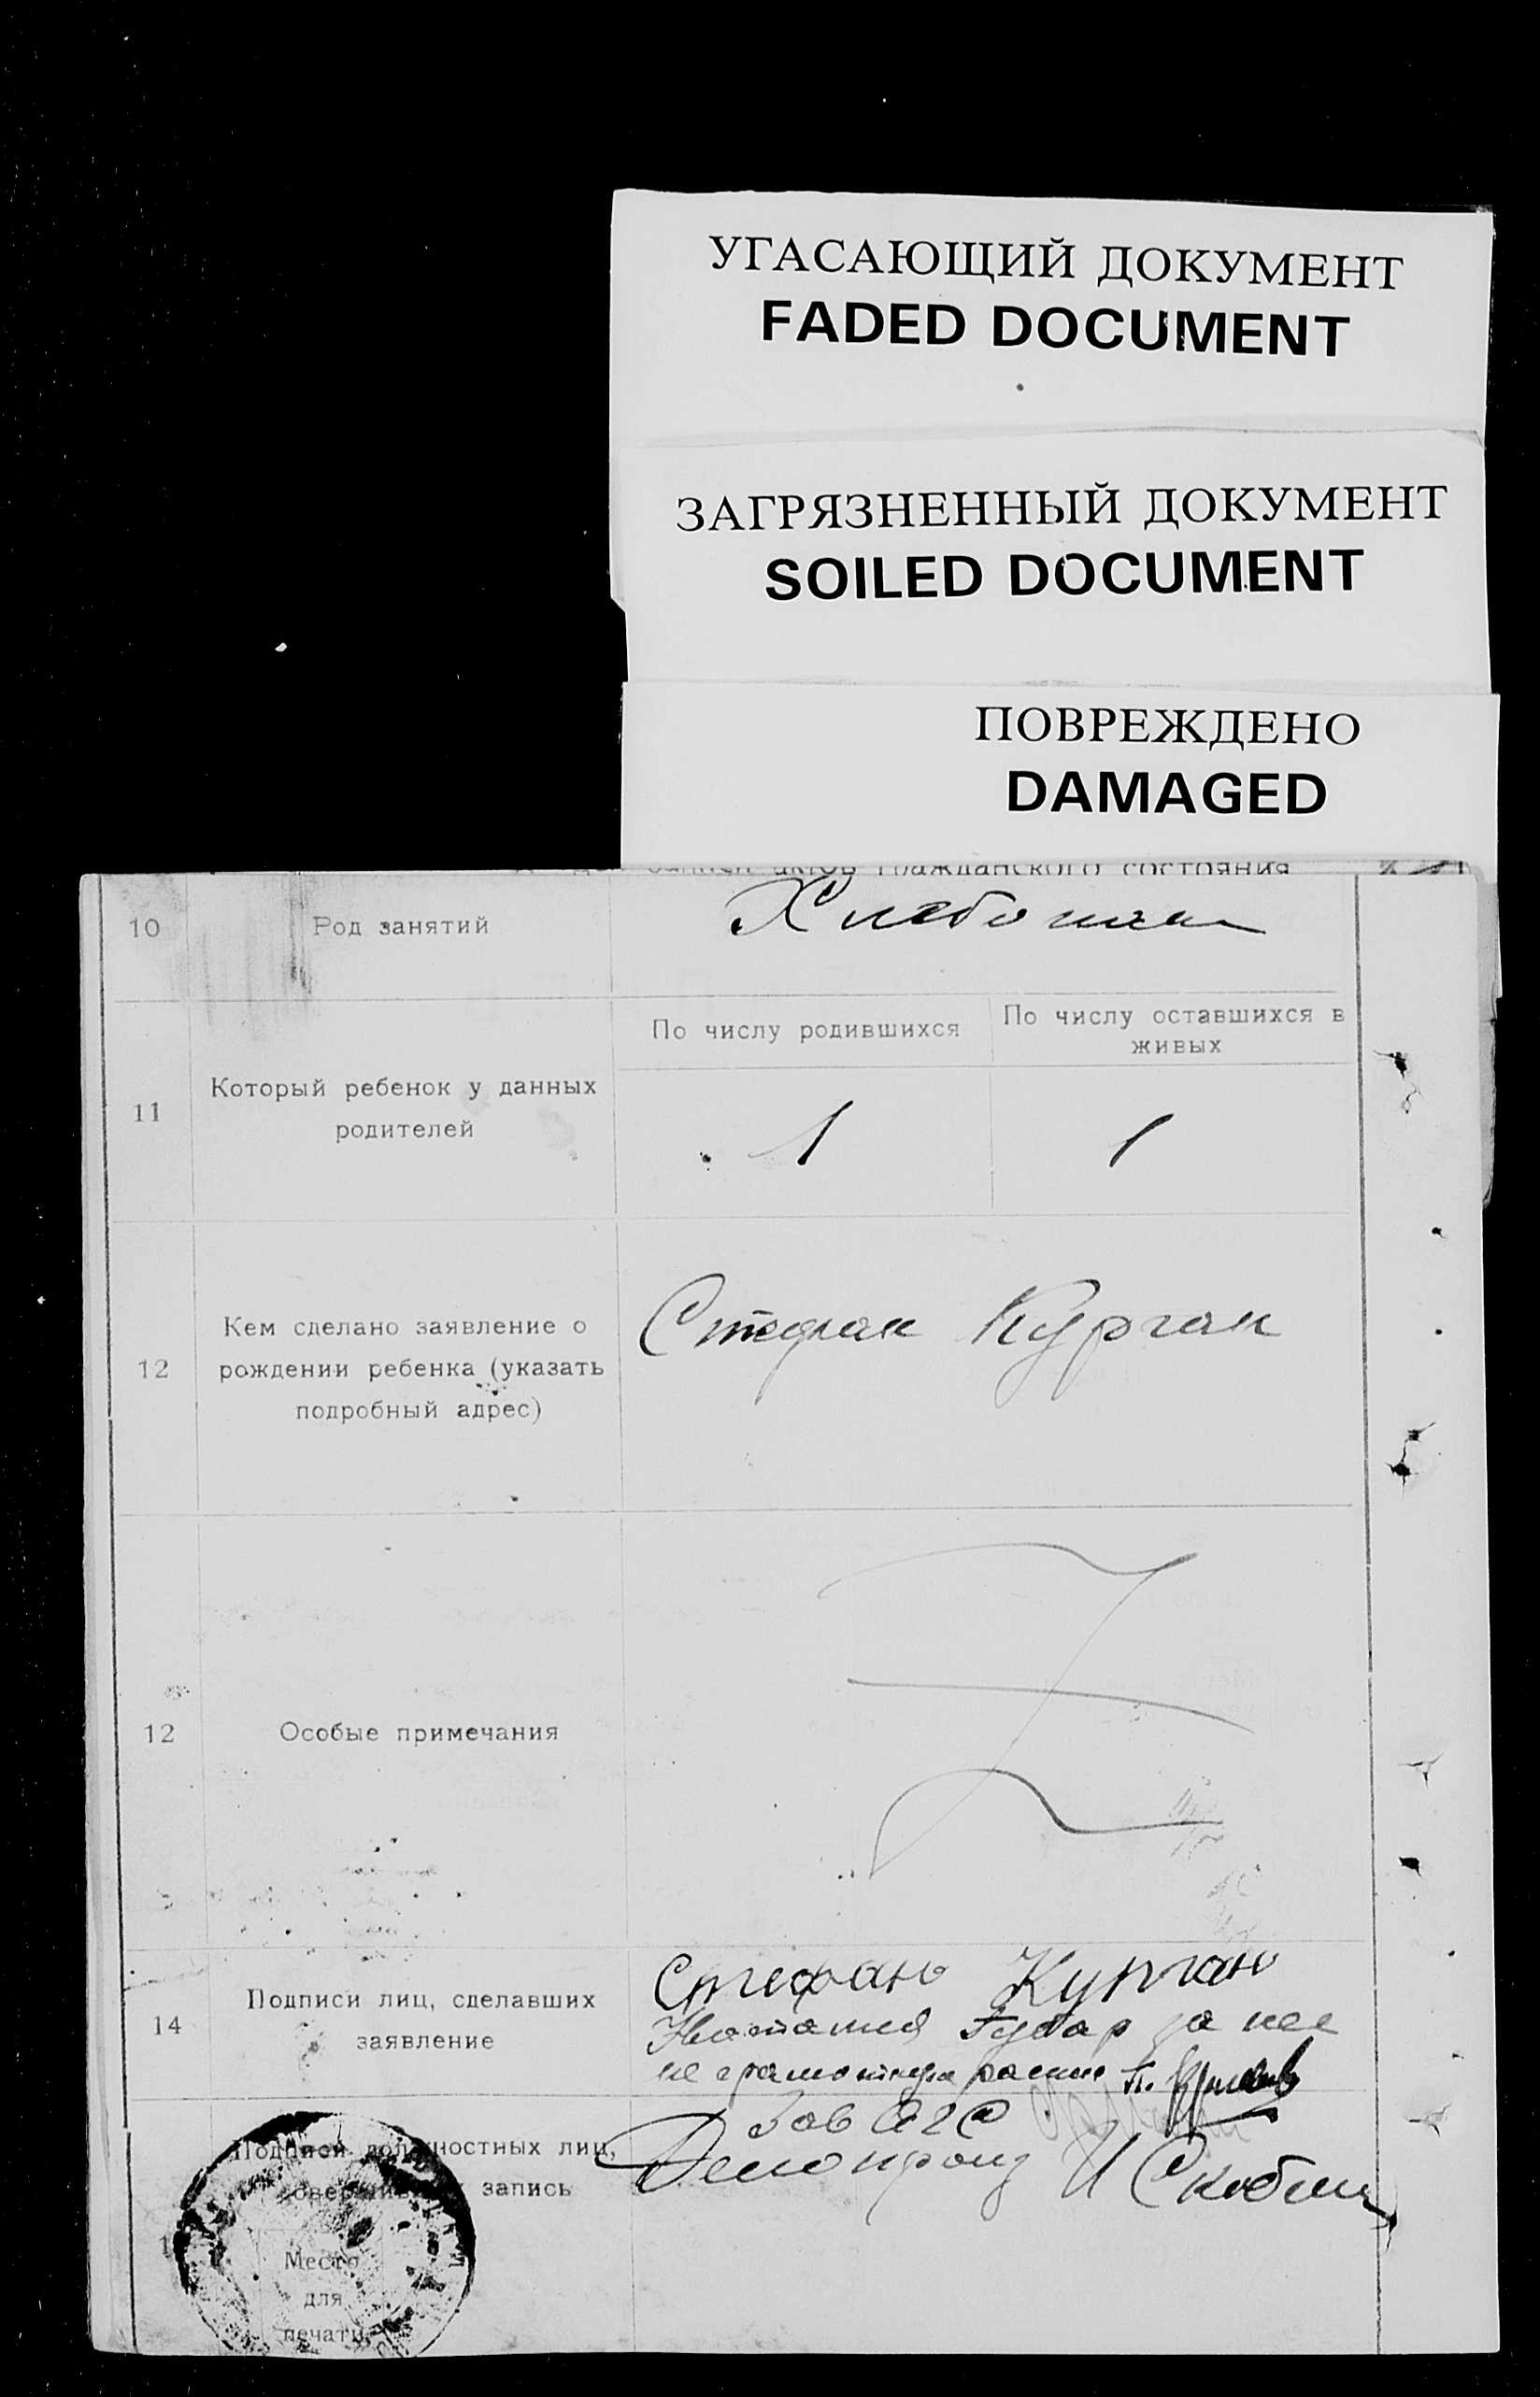 УГАСАЮЩИЙ ДОКУМЕНТ
FADED DOCUMENT
ЗАГРЯЗНЕННЫЙ ДОКУМЕНТ
SOILED DOCUMENT
ПОВРЕЖДЕНО
DAMAGED
актов гражданского состояния
10 Род занятий Хлебопаш
По числу родившихся По числу оставшихся в
живых
11 Который ребенок у данных
родителей
1 1
12 Кем сделано заявление о
рождении ребенка (указать
подробный адрес)
Стефан Курган
12 Особые примечания
14 Подписи лиц, сделавших
заявление
Стефань Курган
за нее
Подписи должностных лиц,
запись
Зав
Делопроиз И
Место
для
печати